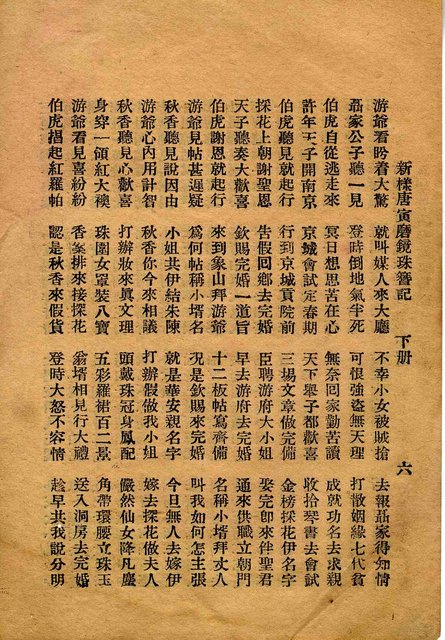 新樣唐寅磨鏡珠簪記 下册 六
游爺看昑着大驚 就叫媒人來大廳 不幸小女被賊搶 去報聶家得知情
聶家公子聽一見 登時倒地氣半死 可恨強盜無天理 打散姻緣七代貧
伯虎自從逃走來 冥日想思苦在心 無奈回家勤苦讀 成就功名去求親
許年天子開南京 京城會試定春期 天下舉子都歡喜 收拾琴書去會試
伯虎聽見就起行 行到京城貢院前 三場文章做完備 金榜採花伊名字
採花上朝謝聖恩 告假回鄉去完婚 臣聘游府大小姐 娶完卽來伴聖君
天子聽奏大歡喜 欽賜完婚一道旨 早去游府去完婚 通來供職立朝門
伯虎謝恩就起行 來到象山拜游爺 十二板帖寫齊備 名稱小壻拜丈人
游爺見帖甚遲疑 為何帖稱小壻名 况是欽賜來完婚 叫我如何怎主張
秋香聽見說因由 小姐共伊結朱陳 就是華安親名字 今旦無人去嫁伊
游爺心內用計智 秋香你今來相議 打辦假做我小姐 嫁去探花做夫人
秋香聽見心歡喜 打辦妝來眞文理 頭戴珠冠身鳳配 儼然仙女降凡塵
身穿一領紅大襖 珠圍女罩裝八寶 五彩羅裙百二景 角帶環腰立珠玉
游爺看見喜紛紛 香案排來接探花 翁壻相見行大禮 送入洞房去完婚
伯虎揭起紅羅帕 認是秋香來假貨 登時大怒不容情 趁早共我說分明